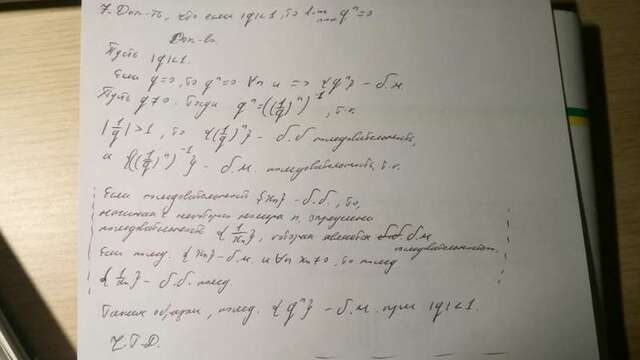 7. Док-ть, что если |q|<1, то lim n→∞ q^n=0
Док-во.
Пусть |q|<1.
Если q=0, то q^n=0 ∀n и => {q^n} - б.м.
Пусть q≠0. Тогда q^n=((1/q)^n)^-1, т.к.
|1/q|>1, то {(1/q)^n} - б.б последовательность,
и {((1/q)^n)^-1} - б.м. последовательность, т.к.
Если последовательность {xn} - б.б., то,
начиная с некоторого номера n, определена
последовательность {1/xn}, которая является б.м.
последовательностью.
Если послед. {xn} - б.м. и ∀n xn≠0, то послед
{1/xn} - б.б. послед.
Таким образом, послед. {q^n} - б.м. при |q|<1.
Ч.Т.Д.